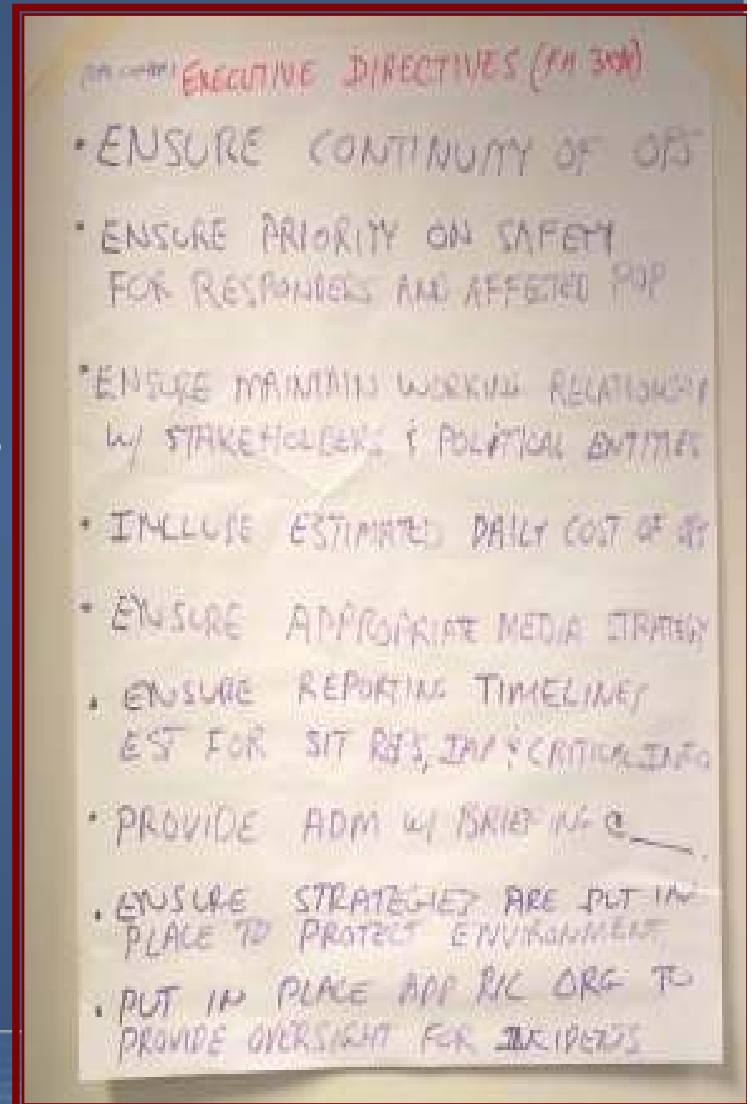 EXECUTIVE DIRECTIVES
• ENSURE CONTINUITY OF OPS
• ENSURE PRIORITY ON SAFETY
FOR RESPONDERS AND AFFECTED POP
• ENSURE MAINTAIN WORKING RELATIONSHIP
W/ STAKEHOLDERS & POLITICAL ENTITIES
• INCLUDE ESTIMATED DAILY COST OF
• ENSURE APPROPRIATE MEDIA STRATEGY
• ENSURE REPORTING TIMELINES
EST FOR SIT IAP & CRITICAL INFO
• PROVIDE ADM W/ BRIEFING @ ___.
• ENSURE STRATEGIES ARE PUT IN
PLACE TO PROTECT ENVIRONMENT
• PUT IN PLACE APP ORG TO
PROVIDE OVERSIGHT FOR INCIDENTS